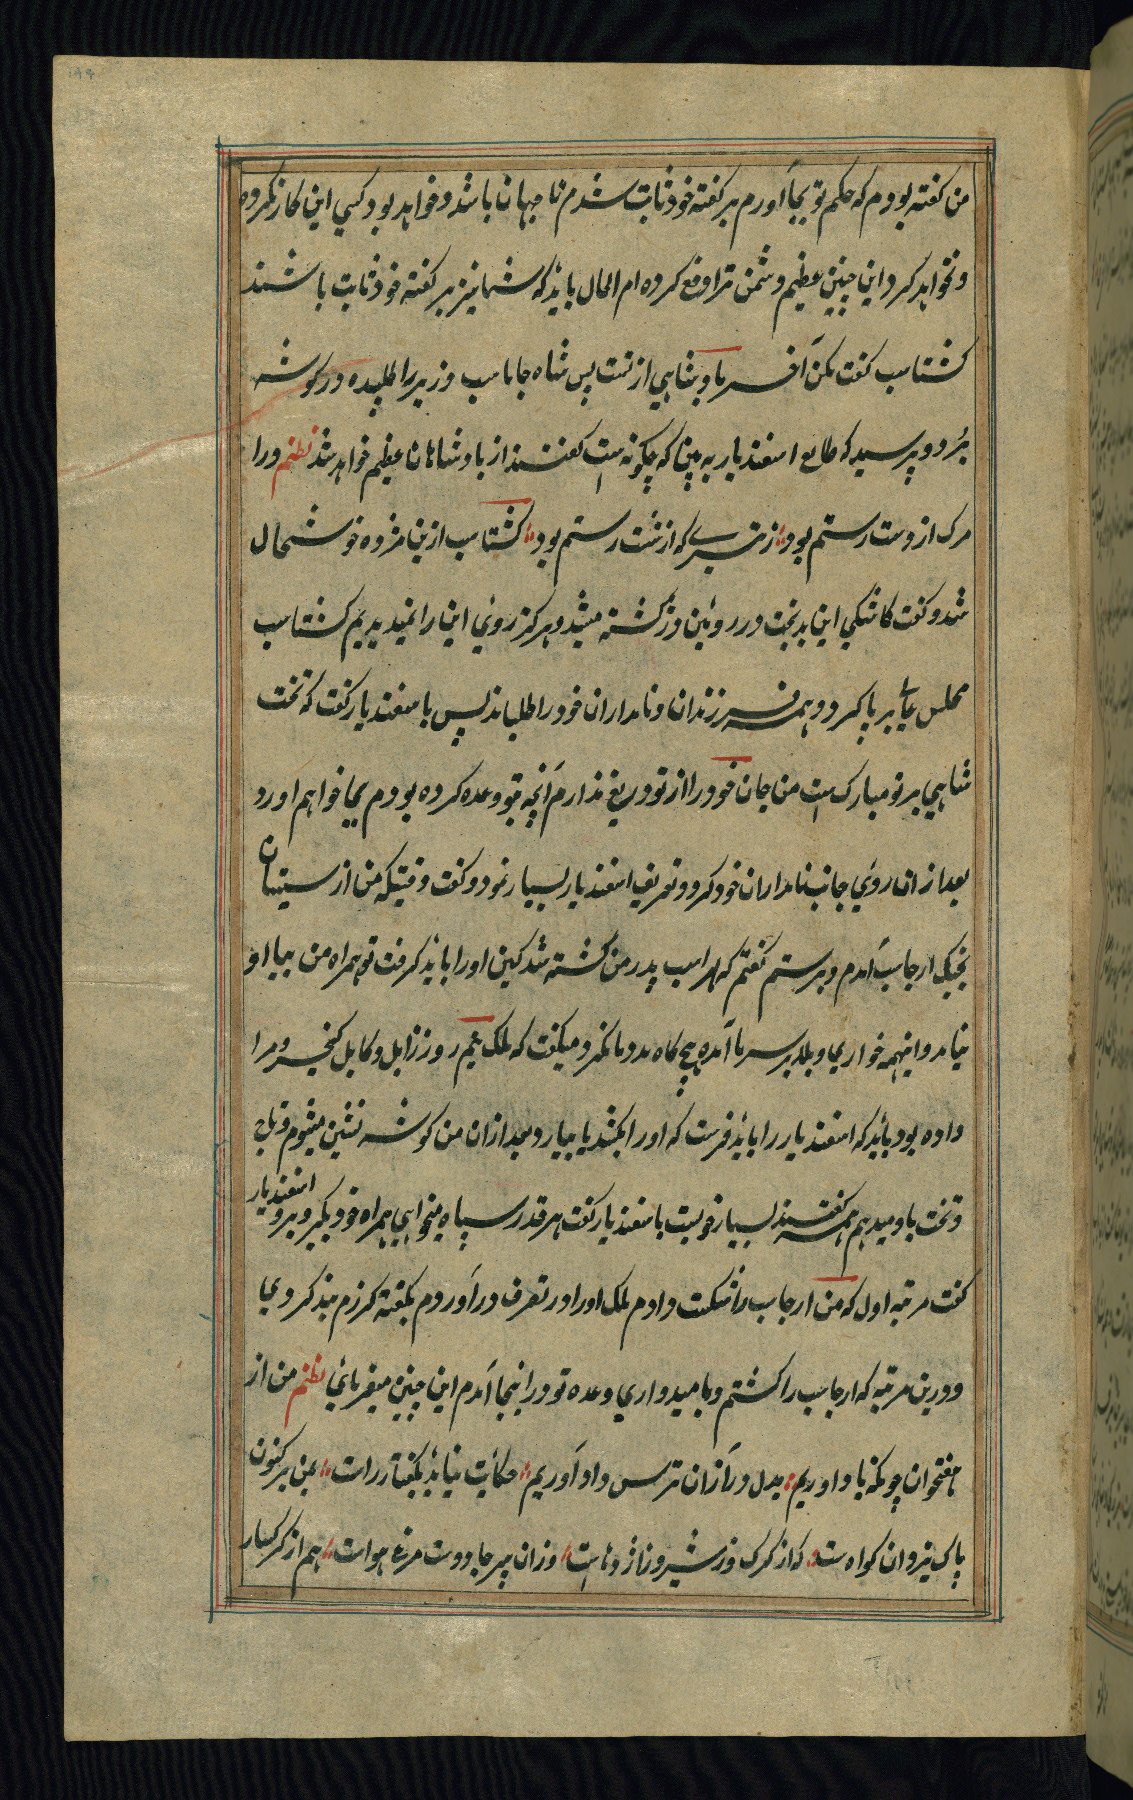 من کفته بودم که حکم تو بجا آورم بر کفته خود ثابت شدم تا جهان باشد و خواهد بود کسي این کار نکرده
و نخواهد کرد این چنین عظیم دشمن ترا دفع کرده ام الحال باید که شما نیز بر کفته خود ثابت باشند
کشتاسب کفت لکن آفسر بادشاهي از تست پس شاه جاماسب وزیر را طلبیده در کوشه
برد و پرسید که طالع اسفندیار به بین که چکونه است کفتند از بادشاهان عظیم خواهد شد نظم ورا
مرک از دست رستم بود ز تیري که از شست رستم بود کشتاسب ازین مژده خوشحال
شد و کفت کاشکي این بدبخت در روئین دز کشته میشد و هرکز روي این را نمیدیدیم کشتاسب
مجلس عالي بر پا کرد و همه فرزندان و نامداران خود را طلباند پس باسفندیار کفت که تخت
شاهي بر تو مبارک است من جان خود را از تو دریغ ندارم آنچه بتو وعده کرده بودم بجا خواهم آورد
بعد ازان روي جانب نامداران خود کرد و تعریف اسفندیار بسیار نمود و کفت وقتیکه من از سیستان
بجنک ارجاسب آمدم و برستم کفتم که لهراسب پدر من کشته شد کین او را باید کرفت تو همراه من بیا او
نیامد و اینهمه خواري و بلا بر سر ما آمده هیچ کاه مدد ما نکرد و میکفت که ملک نیمروز زابل و کابل کیخسرو مرا
داده بود باید که اسفندیار را باید فرست که او را بکشد یا بیارد بعد ازان من کوشه نشین میشوم و تاج
و تخت باو میدهم همه کفتند بسیار خوبست باسفندیار کفت هر قدر سپاه میخواهي همراه خود بکیر و برو اسفندیار
کفت مرتبه اول که من ارجاسب را شکست دادم ملک او را در تصرف در آوردم بکفته کرزم بند کردي مرا
و درین مرتبه که ارجاسب را کشتم و بامیدواري وعده تو در اینجا آمدم این چنین میفرمائي نظم من از
هفتخوان چونکه یاد آوریم بدل در ازان ترس داد آوریم حکایت نیاید بکفتار راست بمن بر کنون
پاک یزدان کواه است که از کرک وز شیر وز اژدهاست وزان پیر جادوست مرغ هواست هم از کرکسار